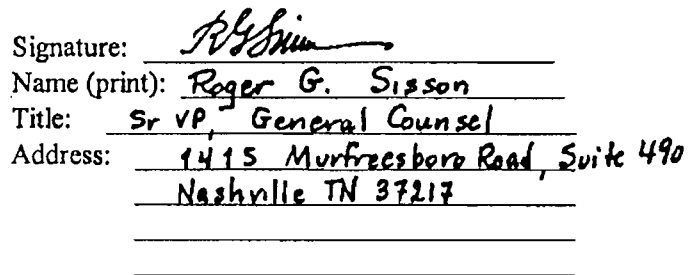 Signature: RGSisson
Name (print): Roger G. Sisson
Title: Sr VP, General Counsel
Address: 1415 Murfreesboro Road, Suite 490
Nashville TN 37217